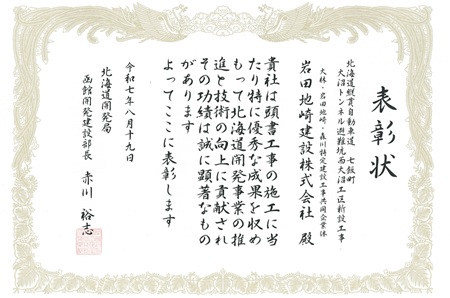 表彰状
北海道縦貫自動車道 七飯町
大沼トンネル避難坑西大沼工区新設工事
大林・岩田地崎・森川特定建設工事共同企業体
岩田地崎建設株式会社 殿
貴社は頭書工事の施工に当
たり特に優秀な成果を収め
もって北海道開発事業の推
進と技術の向上に貢献され
その功績は誠に顕著なもの
があります
よってここに表彰します
令和七年八月十九日
北海道開発局
函館開発建設部長 赤川 裕志